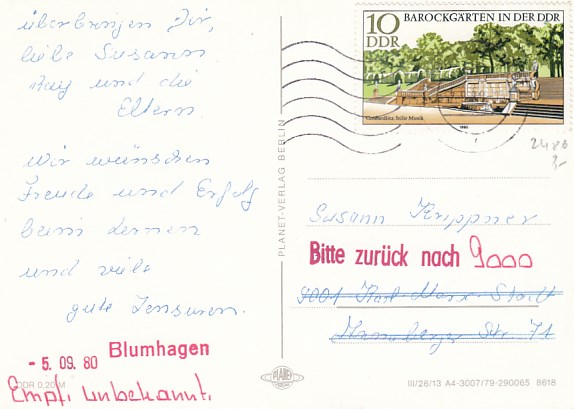 überbringen Dir,
liebe Susann
und die
Eltern.
Wir wünschen
Freude und Erfolg
beim Lernen
und viele
gute Zensuren.
- 5. 09. 80 Blumhagen
DDR 0,20 M
Empf. unbekannt.
PLANET-VERLAG BERLIN
PLANET
10
DDR
BAROCKGÄRTEN IN DER DDR
Großsedlitz, Stille Musik
1980
Susann Krippner
Bitte zurück nach 9000
9001 Karl-Marx-Stadt
Str. 71
III/26/13 A4-3007/79-290065 8618